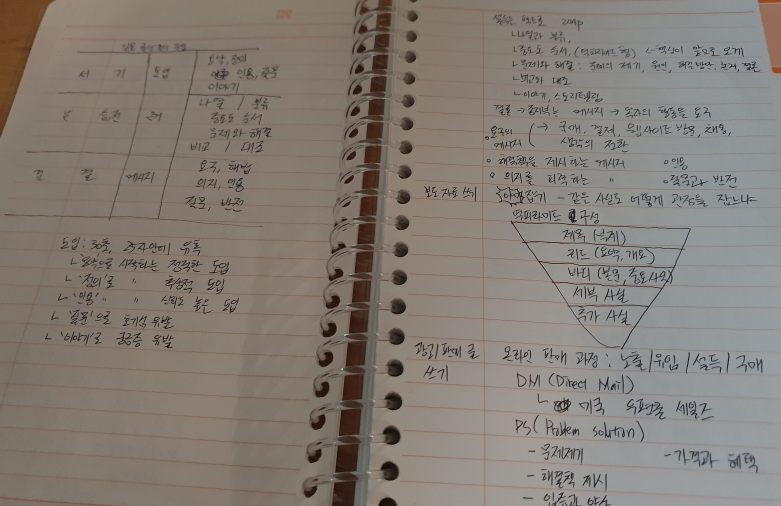 서 기
도입
요약, 정의
인용, 질문
이야기
본 승전
나열 / 분류
중요도 순서
문제와 해결
비교 / 대조
결 결
메시지
요구, 해법
의지, 인용
질문, 반전
도입: 30초, 25자 안에 유혹
ㄴ '요약'으로 시작하는 정직한 도입
ㄴ '정의'로 " 도입
ㄴ '인용' " " 신뢰도 높은 도입
ㄴ '질문'으로 호기심 유발
ㄴ '이야기'로 궁금증 유발
ㄴ 나열과 분류,
ㄴ 중요도 순서, (역피라미드형) ← 핵심이 앞으로 오게
ㄴ 문제와 해결 : 문제의 제기, 원인, 해결방안
ㄴ 비교와 대조
ㄴ 이야기, 스토리텔링
결론 → 메시지 → 독자의 행동을 요구
요구의 메시지 → 구매, 결제, 웹사이트 방문, 채용,
생각의 전환
해결책을 제시하는 메시지 인용
의지를 피력하는 " 질문과 반전
보도자료 쓰기
- 같은 사실도 어떻게 관점을 잡느냐
역피라미드 구성
제목
리드 (요약, 개요)
바디
세부 사실
추가 사실
광고/판매 글
쓰기
온라인 판매 과정 : 노출/유입/설득/구매
DM (Direct Mail)
ㄴ 미국 우편물 세일즈
PS (Problem solution)
- 문제제기
- 가격과 혜택
- 해결책 제시